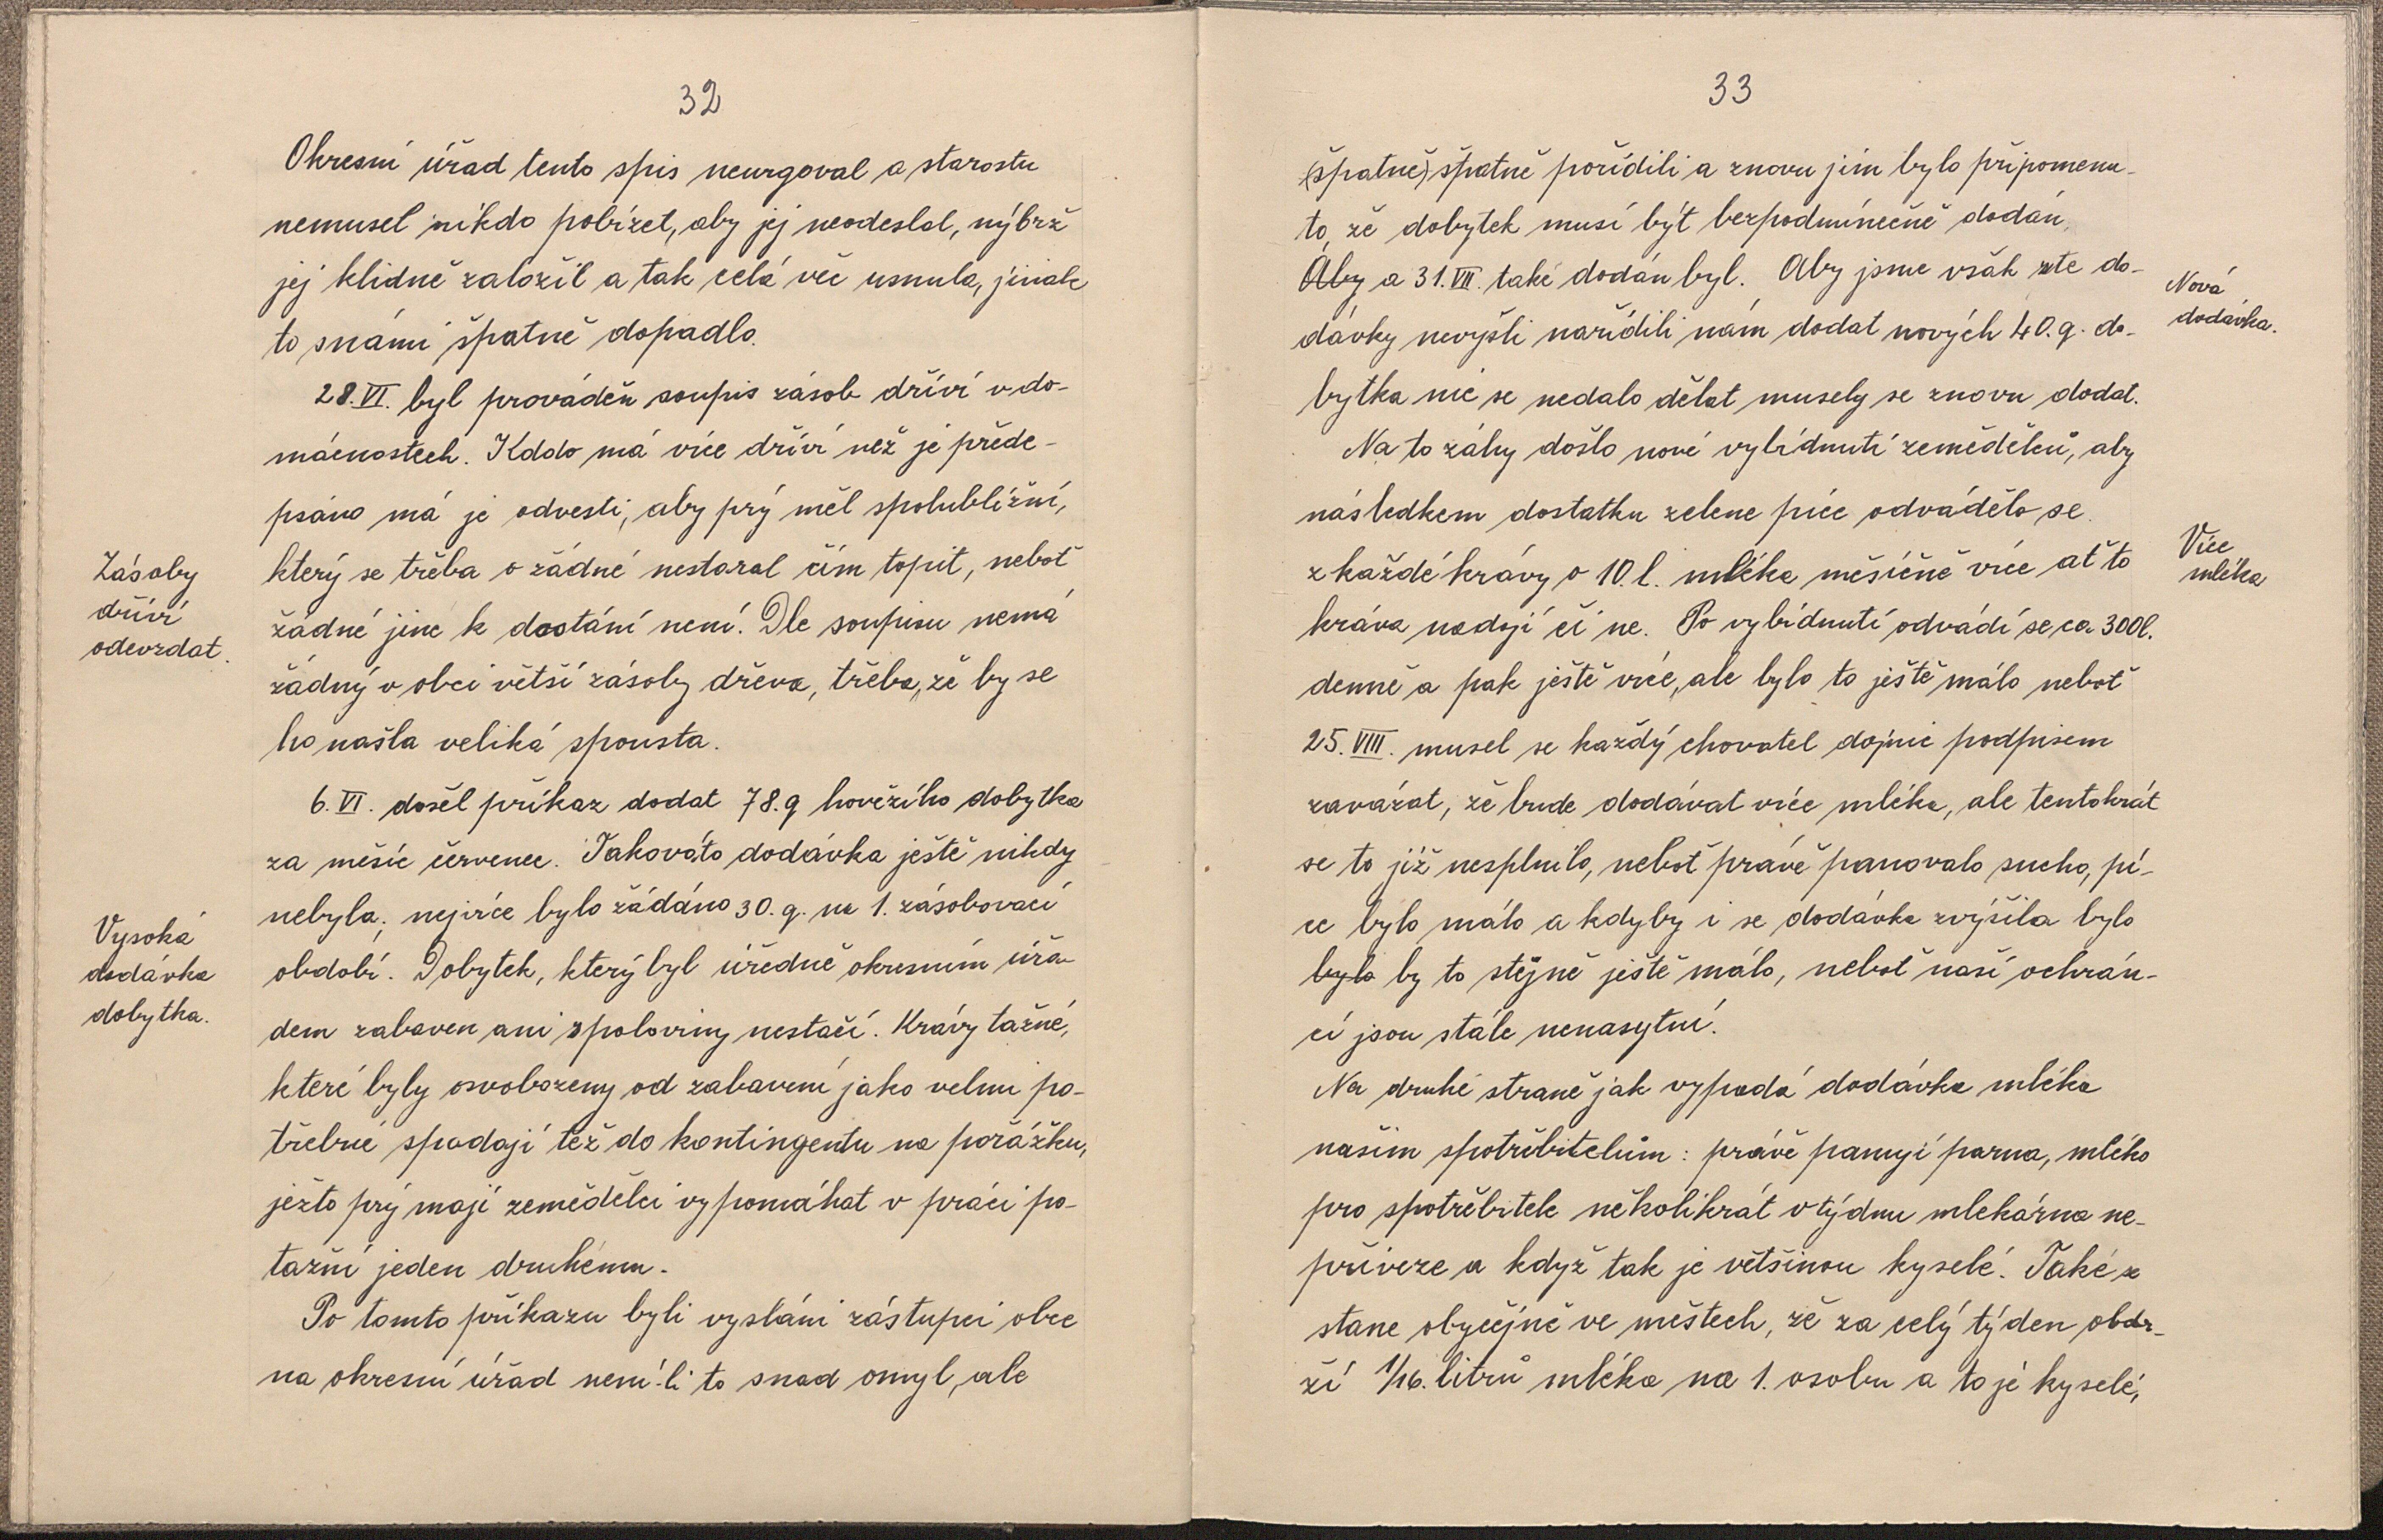 32
Okresní úřad tento spis neurgoval a starostu
nemusel nikdo pobízet, aby jej neodeslal, nýbrž
jej klidně založil a tak celá věc usnula, jinak
to s námi špatně dopadlo.
28. VI. byl prováděn soupis zásob dříví v do-
mácnostech. Kddo má více dříví než je přede-
psáno má je odvesti, aby prý měl spolubližní,
Zásoby
dříví
odevzdat.
který se třeba o žádné nestaral čím topit, neboť
žádné jine k dostání není. Dle soupisu nemá
žádný v obci větší zásoby dřeva, třeba, že by se
ho našla veliká spousta.
6. VI. došel příkaz dodat 78. q hovězího dobytka
za měsíc červenec. Takováto dodávka ještě nikdy
nebyla, nejvíce bylo žádáno 30. q. na 1. zásobovací
Vysoká
dodávka
dobytka.
období. Dobytek, který byl úředně okresním úřa-
dem zabaven ani z poloviny nestačí. Krávy tažné,
které byly osvobozeny od zabavení jako velmi po-
třebné spadají též do kontingentu na porážku,
ježto prý mají zemědělci vypomáhat v práci po-
tažní jeden druhému.
Po tomto příkazu byli vysláni zástupci obce
na okresní úřad není-li to snad omyl, ale
33
(špatně) špatně pořídili a znovu jim bylo připomenu-
to, že dobytek musí být bezpodmínečně dodán,
Aby a 31. VII. také dodán byl. Aby jsme však z té do-
Nová
dodávka.
dávky nevyšli nařídili nám dodat nových 40. q. do-
bytka nic se nedalo dělat musely se znovu dodat.
Na to záhy došlo nové vybídnutí zemědělců, aby
následkem dostatku zelene píce odvádělo se
z každé krávy o 10. l. mléka měsíčně více ať to
Více
mléka
kráva nadojí či ne. Po vybídnutí odvádí se ca 300l.
denně a pak ještě více, ale bylo to ještě málo neboť
25. VIII. musel se každý chovatel dojnic podpisem
zavázat, že bude dodávat více mléka, ale tentokrát
se to již nesplnilo, neboť právě panovalo sucho, pí-
ce bylo málo a kdyby i se dodávka zvýšila bylo
bylo by to stejně ještě málo, neboť naší ochrán-
ci jsou stále nenasytní.
Na druhé straně jak vypadá dodávka mléka
našim spotřebitelům: právě panují parna, mléko
pro spotřebitele několikrát v týdnu mlekárna ne-
přiveze a když tak je většinou kyselé. Také se
stane obyčejně ve městech, že za celý týden obdr-
ží 1/16. litrů mléka na 1. osobu a to je kyselé,